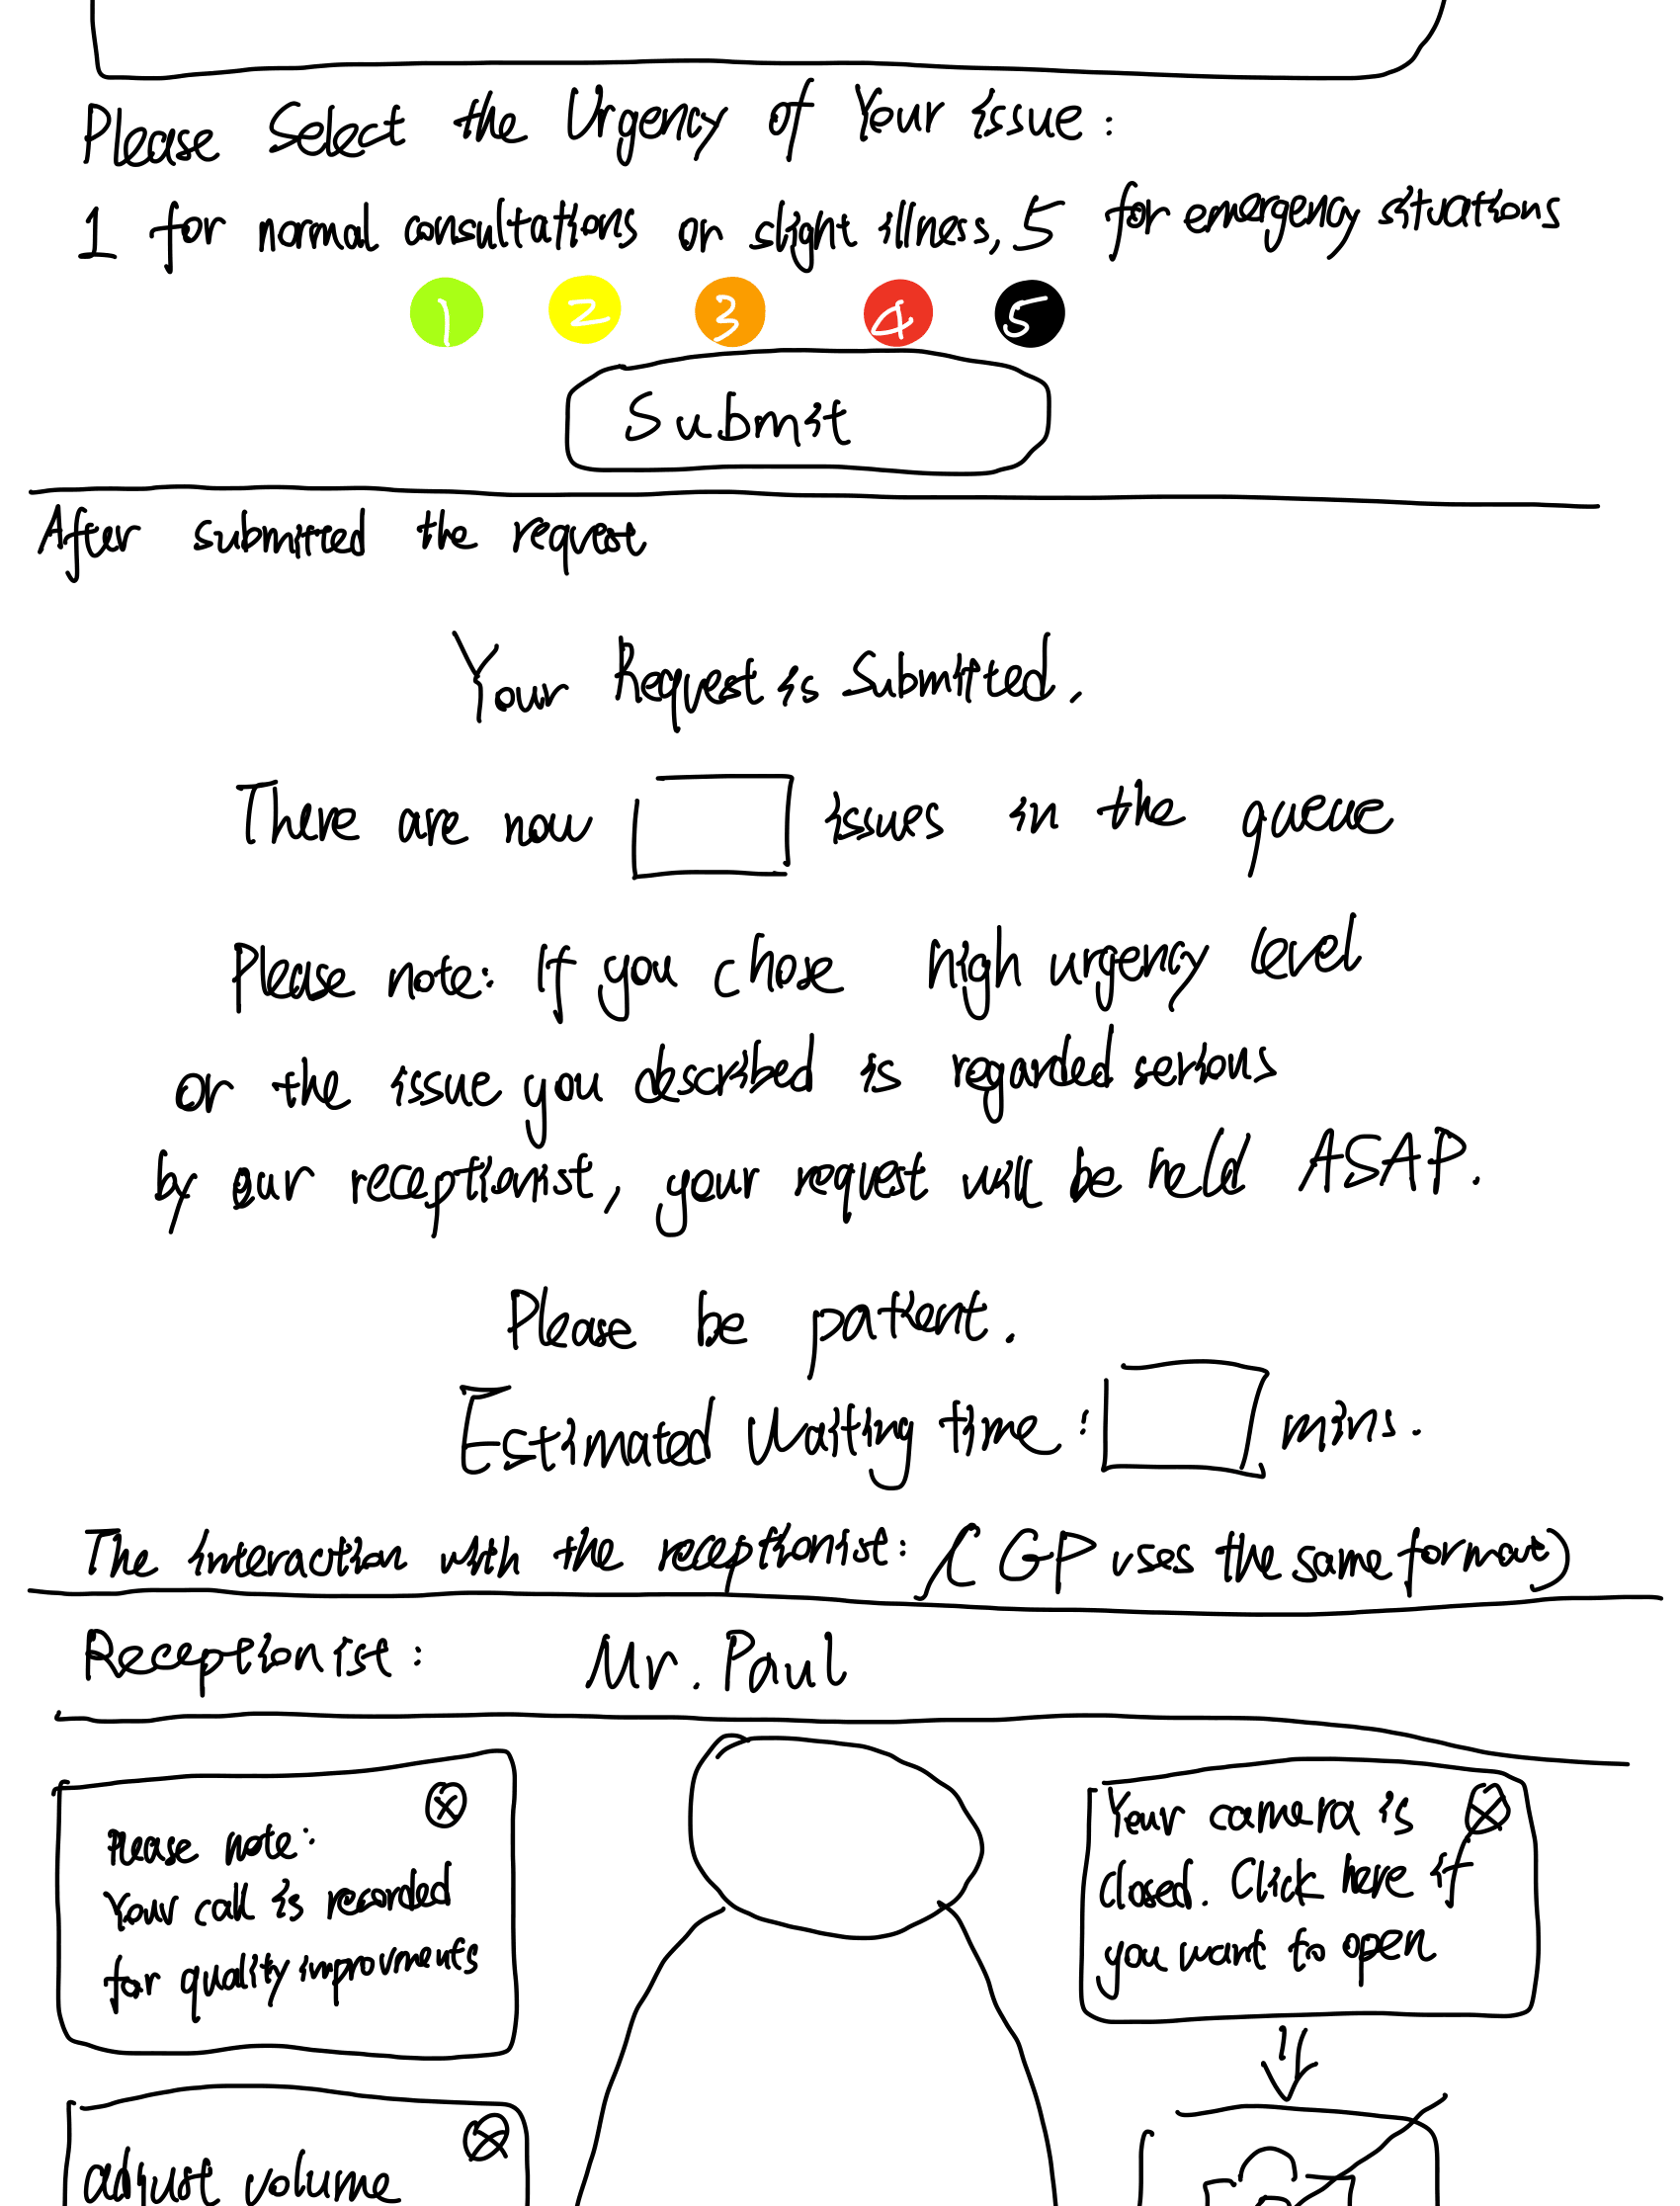 Please Select the Urgency of Your issue:
1 for normal consultations or slight illness, 5 for emergency situations
1 2 3 4 5
Submit
After submitted the request
Your Request is Submitted.
There are now issues in the queue
Please note: If you chose high urgency level
or the issue you described is regarded serious
by our receptionist, your request will be held ASAP.
Please be patient.
Estimated Waiting time: mins.
The interaction with the receptionist: (GP uses the same format)
Receptionist: Mr. Paul
Please note:
Your call is recorded
for quality improvments
Your camera is
closed. Click here if
you want to open
adjust volume